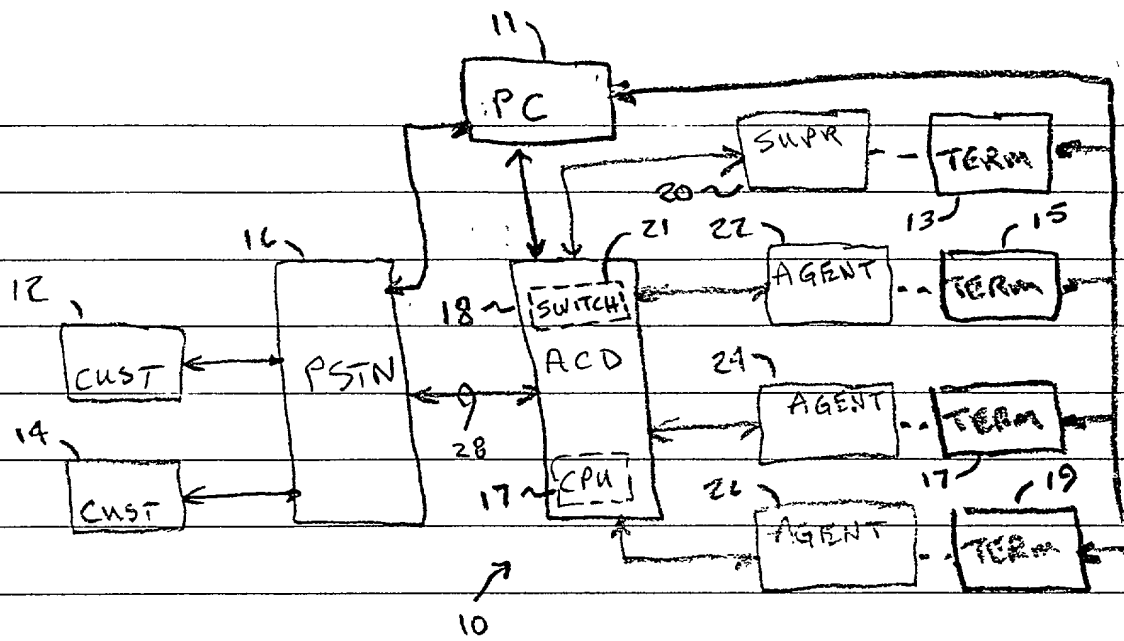 11
PC
SUPR
TERM
20
13
15
16
21
22
12
18
SWITCH
AGENT
TERM
CUST
PSTN
ACD
24
AGENT
TERM
14
28
17
19
CUST
17
CPU
26
AGENT
TERM
10